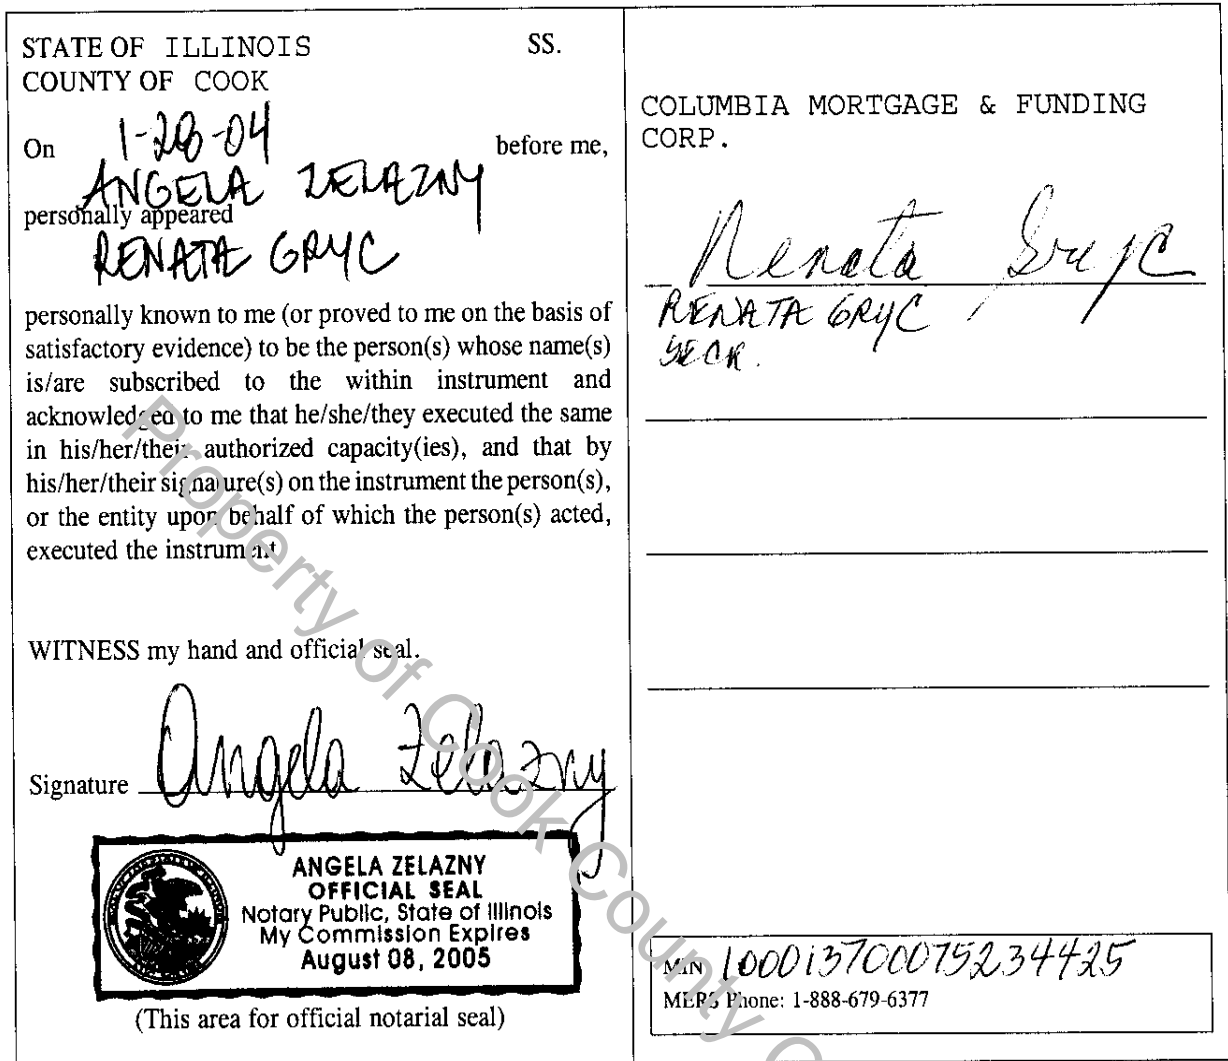 STATE OF ILLINOIS SS.
COUNTY OF COOK
On 1-28-04 before me,
ANGELA ZELAZNY
personally appeared
RENATA GRYC
personally known to me (or proved to me on the basis of
satisfactory evidence) to be the person(s) whose name(s)
is/are subscribed to the within instrument and
acknowledged to me that he/she/they executed the same
in his/her/their authorized capacity(ies), and that by
his/her/their signature(s) on the instrument the person(s),
or the entity upon behalf of which the person(s) acted,
executed the instrument
WITNESS my hand and official seal.
Signature Angela Zelazny
ANGELA ZELAZNY
OFFICIAL SEAL
Notary Public, State of Illinois
My Commission Expires
August 08, 2005
(This area for official notarial seal)
COLUMBIA MORTGAGE & FUNDING
CORP.
Renata Gryc
RENATA GRYC
SECR.
MIN 100013700075234425
MERS Phone: 1-888-679-6377
Property of Cook County